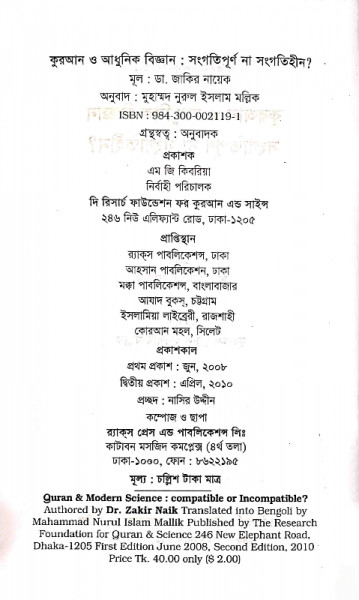 কুরআন ও আধুনিক বিজ্ঞান : সংগতিপূর্ণ না সংগতিহীন?
মূল : ডা. জাকির নায়েক
অনুবাদ : মুহাম্মদ নুরুল ইসলাম মল্লিক
ISBN : 984-300-002119-1
গ্রন্থস্বত্ব : অনুবাদক
প্রকাশক
এম জি কিবরিয়া
নির্বাহী পরিচালক
দি রিসার্চ ফাউন্ডেশন ফর কুরআন এন্ড সাইন্স
২৪৬ নিউ এলিফ্যান্ট রোড, ঢাকা-১২০৫
প্রাপ্তিস্থান
র‍্যাক্স পাবলিকেশন্স, ঢাকা
আহসান পাবলিকেশন, ঢাকা
মক্কা পাবলিকেশন্স, বাংলাবাজার
আযাদ বুকস্, চট্টগ্রাম
ইসলামিয়া লাইব্রেরী, রাজশাহী
কোরআন মহল, সিলেট
প্রকাশকাল
প্রথম প্রকাশ : জুন, ২০০৮
দ্বিতীয় প্রকাশ : এপ্রিল, ২০১০
প্রচ্ছদ : নাসির উদ্দীন
কম্পোজ ও ছাপা
র‍্যাক্স প্রেস এন্ড পাবলিকেশন্স লিঃ
কাটাবন মসজিদ কমপ্লেক্স (৪র্থ তলা)
ঢাকা-১০০০, ফোন : ৮৬২২১৯৫
মূল্য : চল্লিশ টাকা মাত্র
Quran & Modern Science : compatible or Incompatible?
Authored by Dr. Zakir Naik Translated into Bengoli by
Mahammad Nurul Islam Mallik Published by The Research
Foundation for Quran & Science 246 New Elephant Road,
Dhaka-1205 First Edition June 2008, Second Edition, 2010
Price Tk. 40.00 only ($ 2.00)